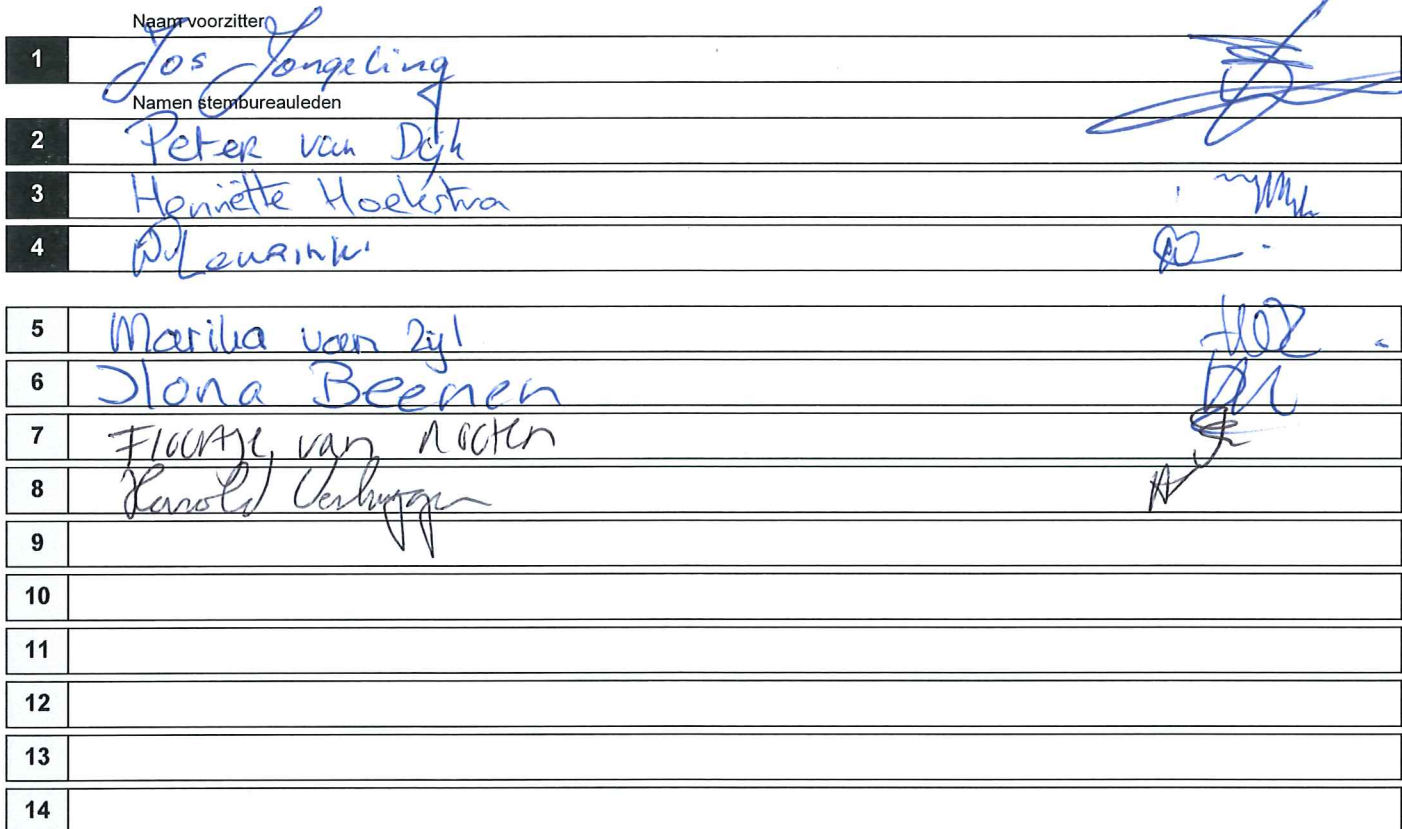 Naam voorzitter
1 Jos Jongeling
Namen stembureauleden
2 Peter van Dijk
3 Henriëtte Hoekstra
4
5 Marika van Zijl
6 Ilona Beenen
7 Floortje van Nooten
8 Harold Verbruggen
9
10
11
12
13
14